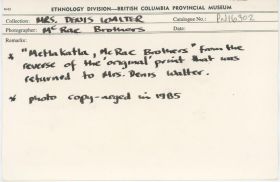 ETHNOLOGY DIVISION—BRITISH COLUMBIA PROVINCIAL MUSEUM
Collection: MRS. DENIS WALTER Catalogue No.: PN16302
Photographer: McRae Brothers Date:
Remarks:
* "Metlakatla, McRae Brothers" from the
reverse of the 'original' print that was
returned to Mrs. Denis Walter.
* photo copy-neged in 1985